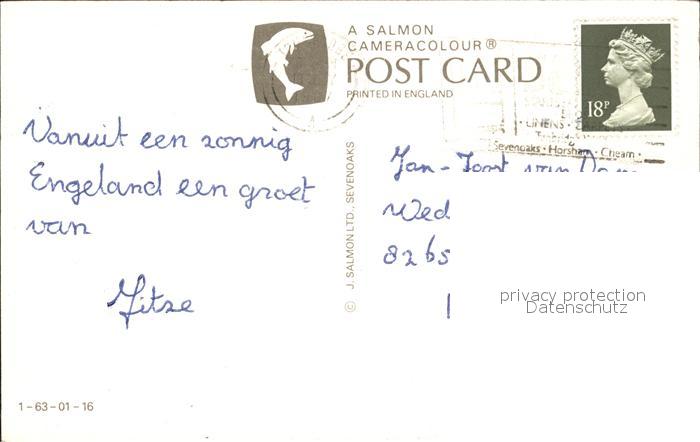 A SALMON
CAMERACOLOUR®
POST CARD
PRINTED IN ENGLAND
18P
LINENS
Sevenoaks · Horsham · Cheam ·
Vanuit een zonnig
Engeland een groet
van
Jitze
© J. SALMON LTD., SEVENOAKS
Jan-Joost van
Wed
8265
privacy protection
Datenschutz
1-63-01-16